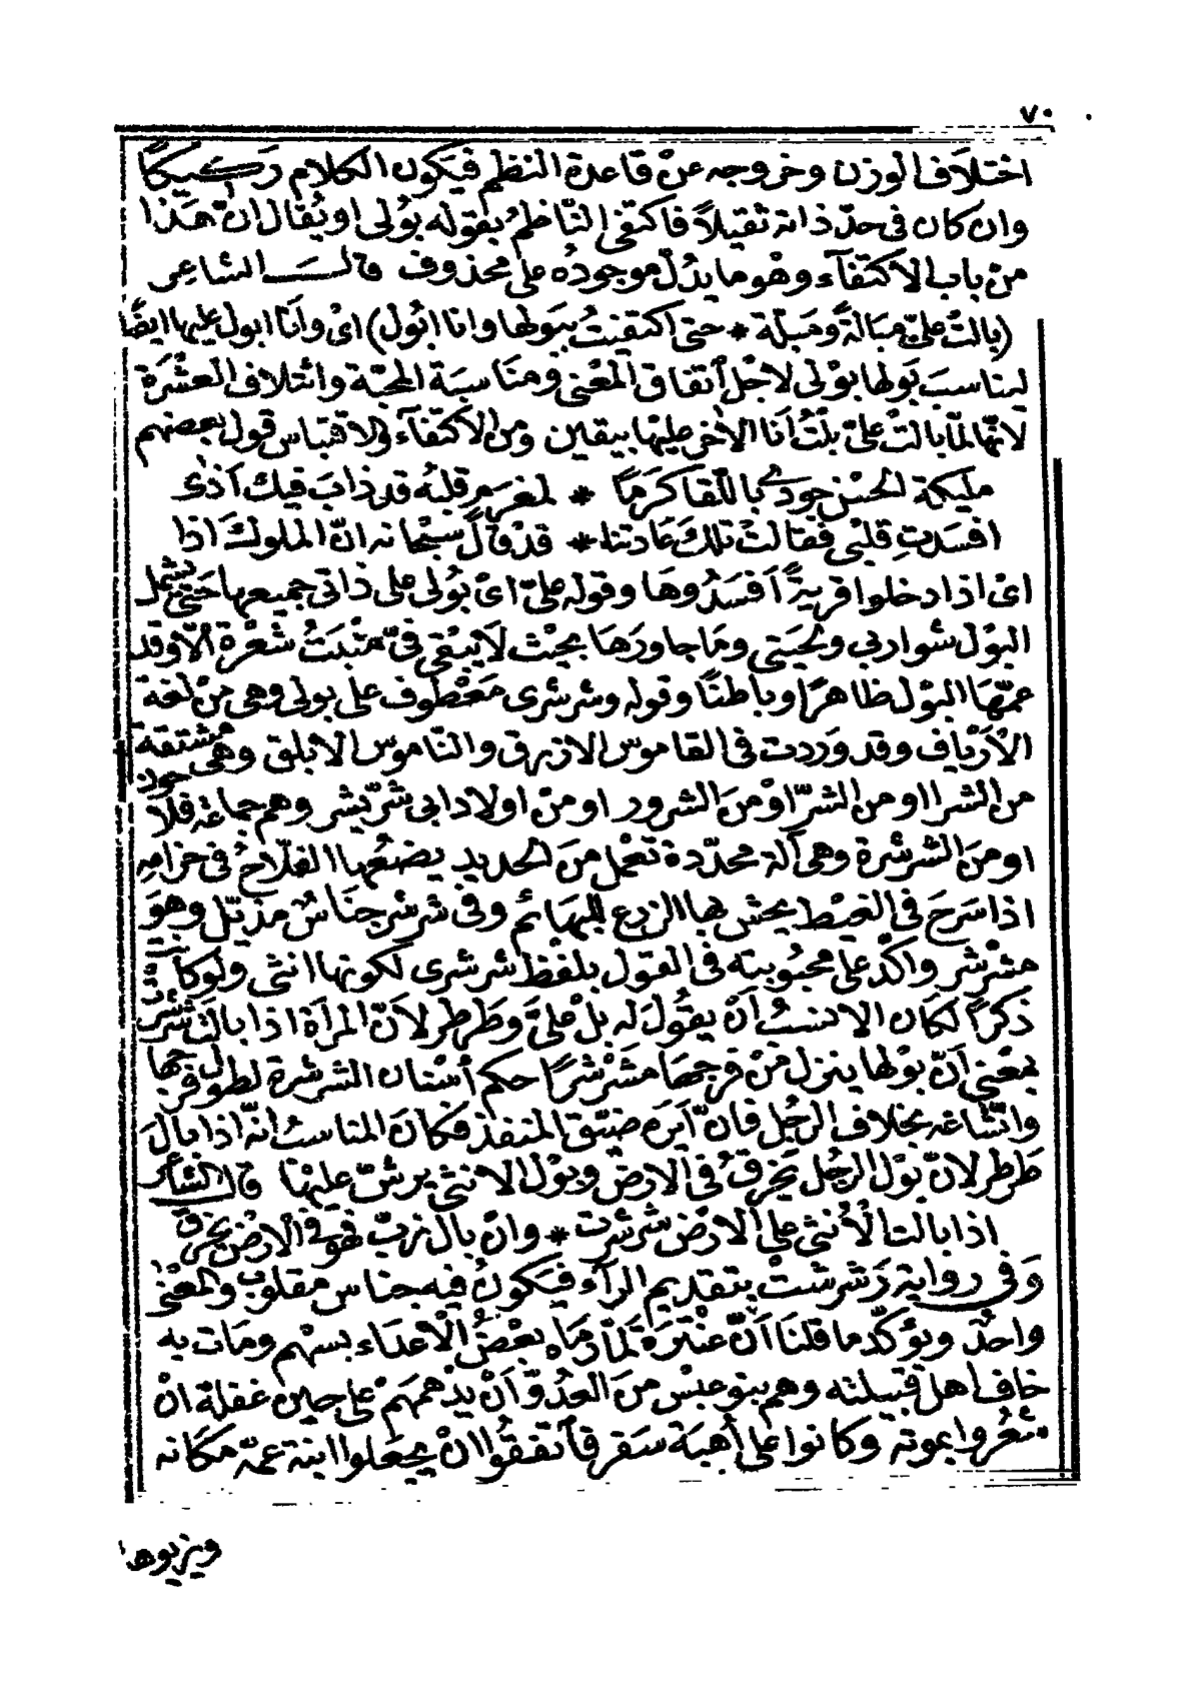 ٧٠
اختلاف الوزن وخروجه عنْ قاعدة النظم فيكون الكلام ركيكًا
وان كان فى حدّ ذاته ثقيلاً فاكتفى النّاظمُ بقوله بُولى او يُقال انّ هَذا
منْ باب الاكتفآء وهْو ما يدُلّ موجودُه على محذوف قالـــ الشاعر
(بالتْ علىّ مبالةً ومَبلة * حتى اكتفيتُ ببَولها وانا ابُول) اىْ وأنا ابول عليها ايضًا
ليناسبَ بَولها بوْلى لاجْل اتفاق المعْنى ومنَاسبَة المحبّة وائتلاف العشْرة
لانّها لمّا بالتْ علىّ بلتُ أنا الاخر عليْها بيقين ومن الاكتفآء والاقتباس قول بعضهم
مليكة الحسْن جودى باللّقا كرَمًا * لمغرم قلبُه قد ذابَ فيك أذى
افسَدتِ قلبْى فقالتْ تلكَ عَادتنا * قدْ قالَ سبحانه انّ الملوكَ اذا
اىْ اذا دخلوا قريةً أفسَدُوهَا وقوله علىّ اىْ بُولى على ذاتى جميعها حَتى يشمل
البوْل شواربي ولحْيتى ومَا جاورَهَا بحيْث لا يبْقى فىّ منْبتُ شعْرة الّا وقد
عمّهَا البوْل ظاهرًا وباطنًا وقوله وشرشرى معْطوف على بولى وهى منْ لغة
الأرْياف وقد وَردت فى القاموس الازرق والنّاموس الابلق وهى مشتقة
من الشرا او من الشرّ اوْ منَ الشرور او منْ اولاد ابى شرّيشر وهم جماعة فلّاحون
او منَ الشرشرة وهى آلة محدّدة تعْمل منَ الحديد يضعُها الفلّاحُ فى حزامه
اذا سَرحَ فى الغيْط يحش بها الزرع للبهائم وفى شرشر جنَاسٌ مذيّل وهوَ
مشرْشر واكّد على محبُوبته فى القول بلفظ شرشرى لكونها انثى ولو كانت
ذكرًا لكان الانسبُ أنْ يقُولَ له بلْ علىَّ وطَرطر لأنّ المرأة اذا بالت شرشرتْ
بمعْنى أنّ بوْلها ينزل منْ فرجهَا مشَرْشرًا حكم أسْنان الشرشرة لطول فرجها
واتّساعه بخلاف الرجُل فانّ أيرَه ضيّق المنفذ فكانَ المناسبُ انّه اذا بالَ
طَرطر لانّ بوْل الرجُل يَخرقُ فى الارض وبوْل الانثى يرشّ عليْها قال الشّاعر
اذا بالت الأنثى على الارْض شرْشرت * وانْ بال زبّ فهو فى الارْض يخرق
وَفى رواية رَشرشتْ بتقديم الرآء فيَكونُ فيه جناس مقلوب والمعْنى
واحدْ ويؤكّد ما قلنَا أنّ عنْترَة لمّا رَمَاه بعْضُ الأعْداء بسهْم ومَات به
خاف اهل قبيلته وهم بنو عبْس منَ العدُوّ أنْ يدْهمَهمْ على حين غفلة انْ
شعُروا بموته وكانوا على أهبَة سَفر فاتفقُوا انْ يجعَلوا ابنة عمّه مكَانه
ويزيوها